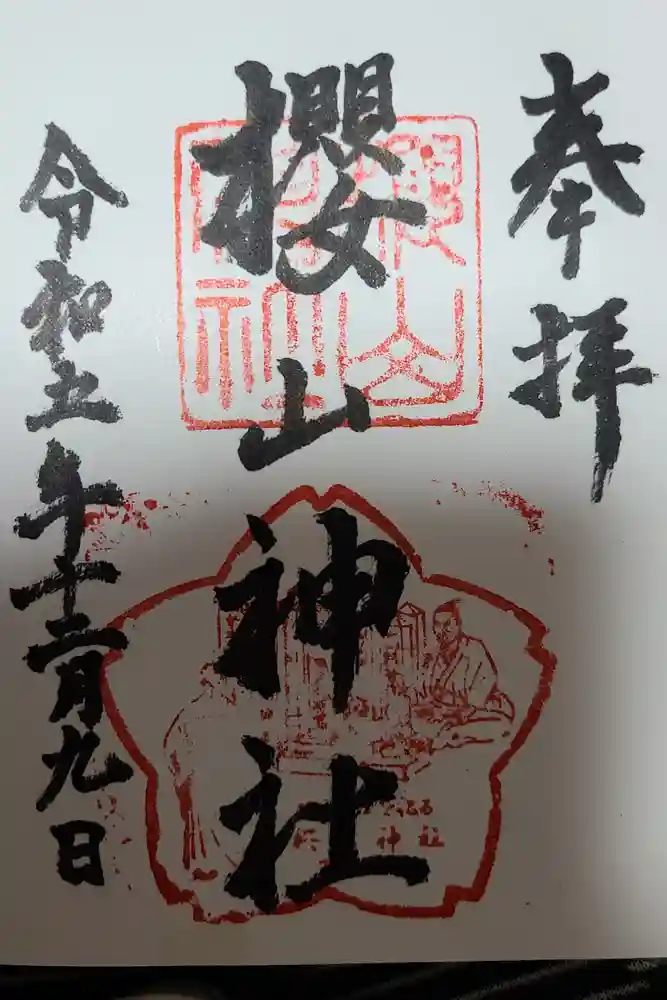 奉拝
櫻山神社
令和五年十二月九日
神社